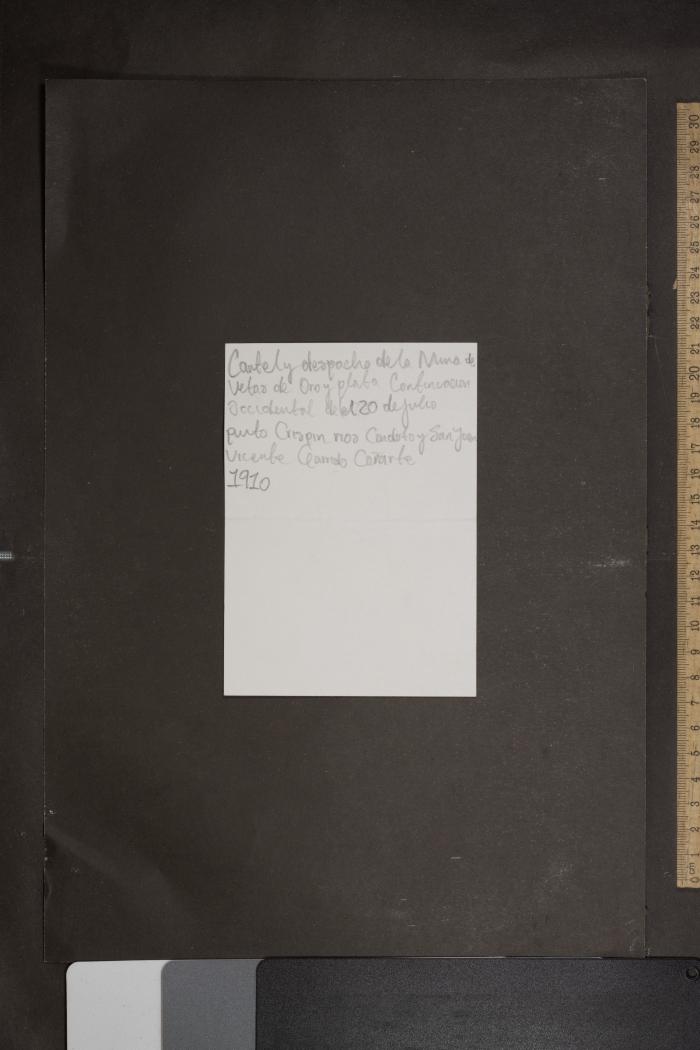 Cartel y despacho de la Mina de
Vetas de Oro y plata Continuacion
Occidental de el 20 de julio
punto Crispin rios Condoto y San Juan
Vicente Garrido
1910
30
29
28
27
26
25
24
23
22
21
20
19
18
17
16
15
14
13
12
11
10
9
8
7
6
5
4
3
2
1
0 cm